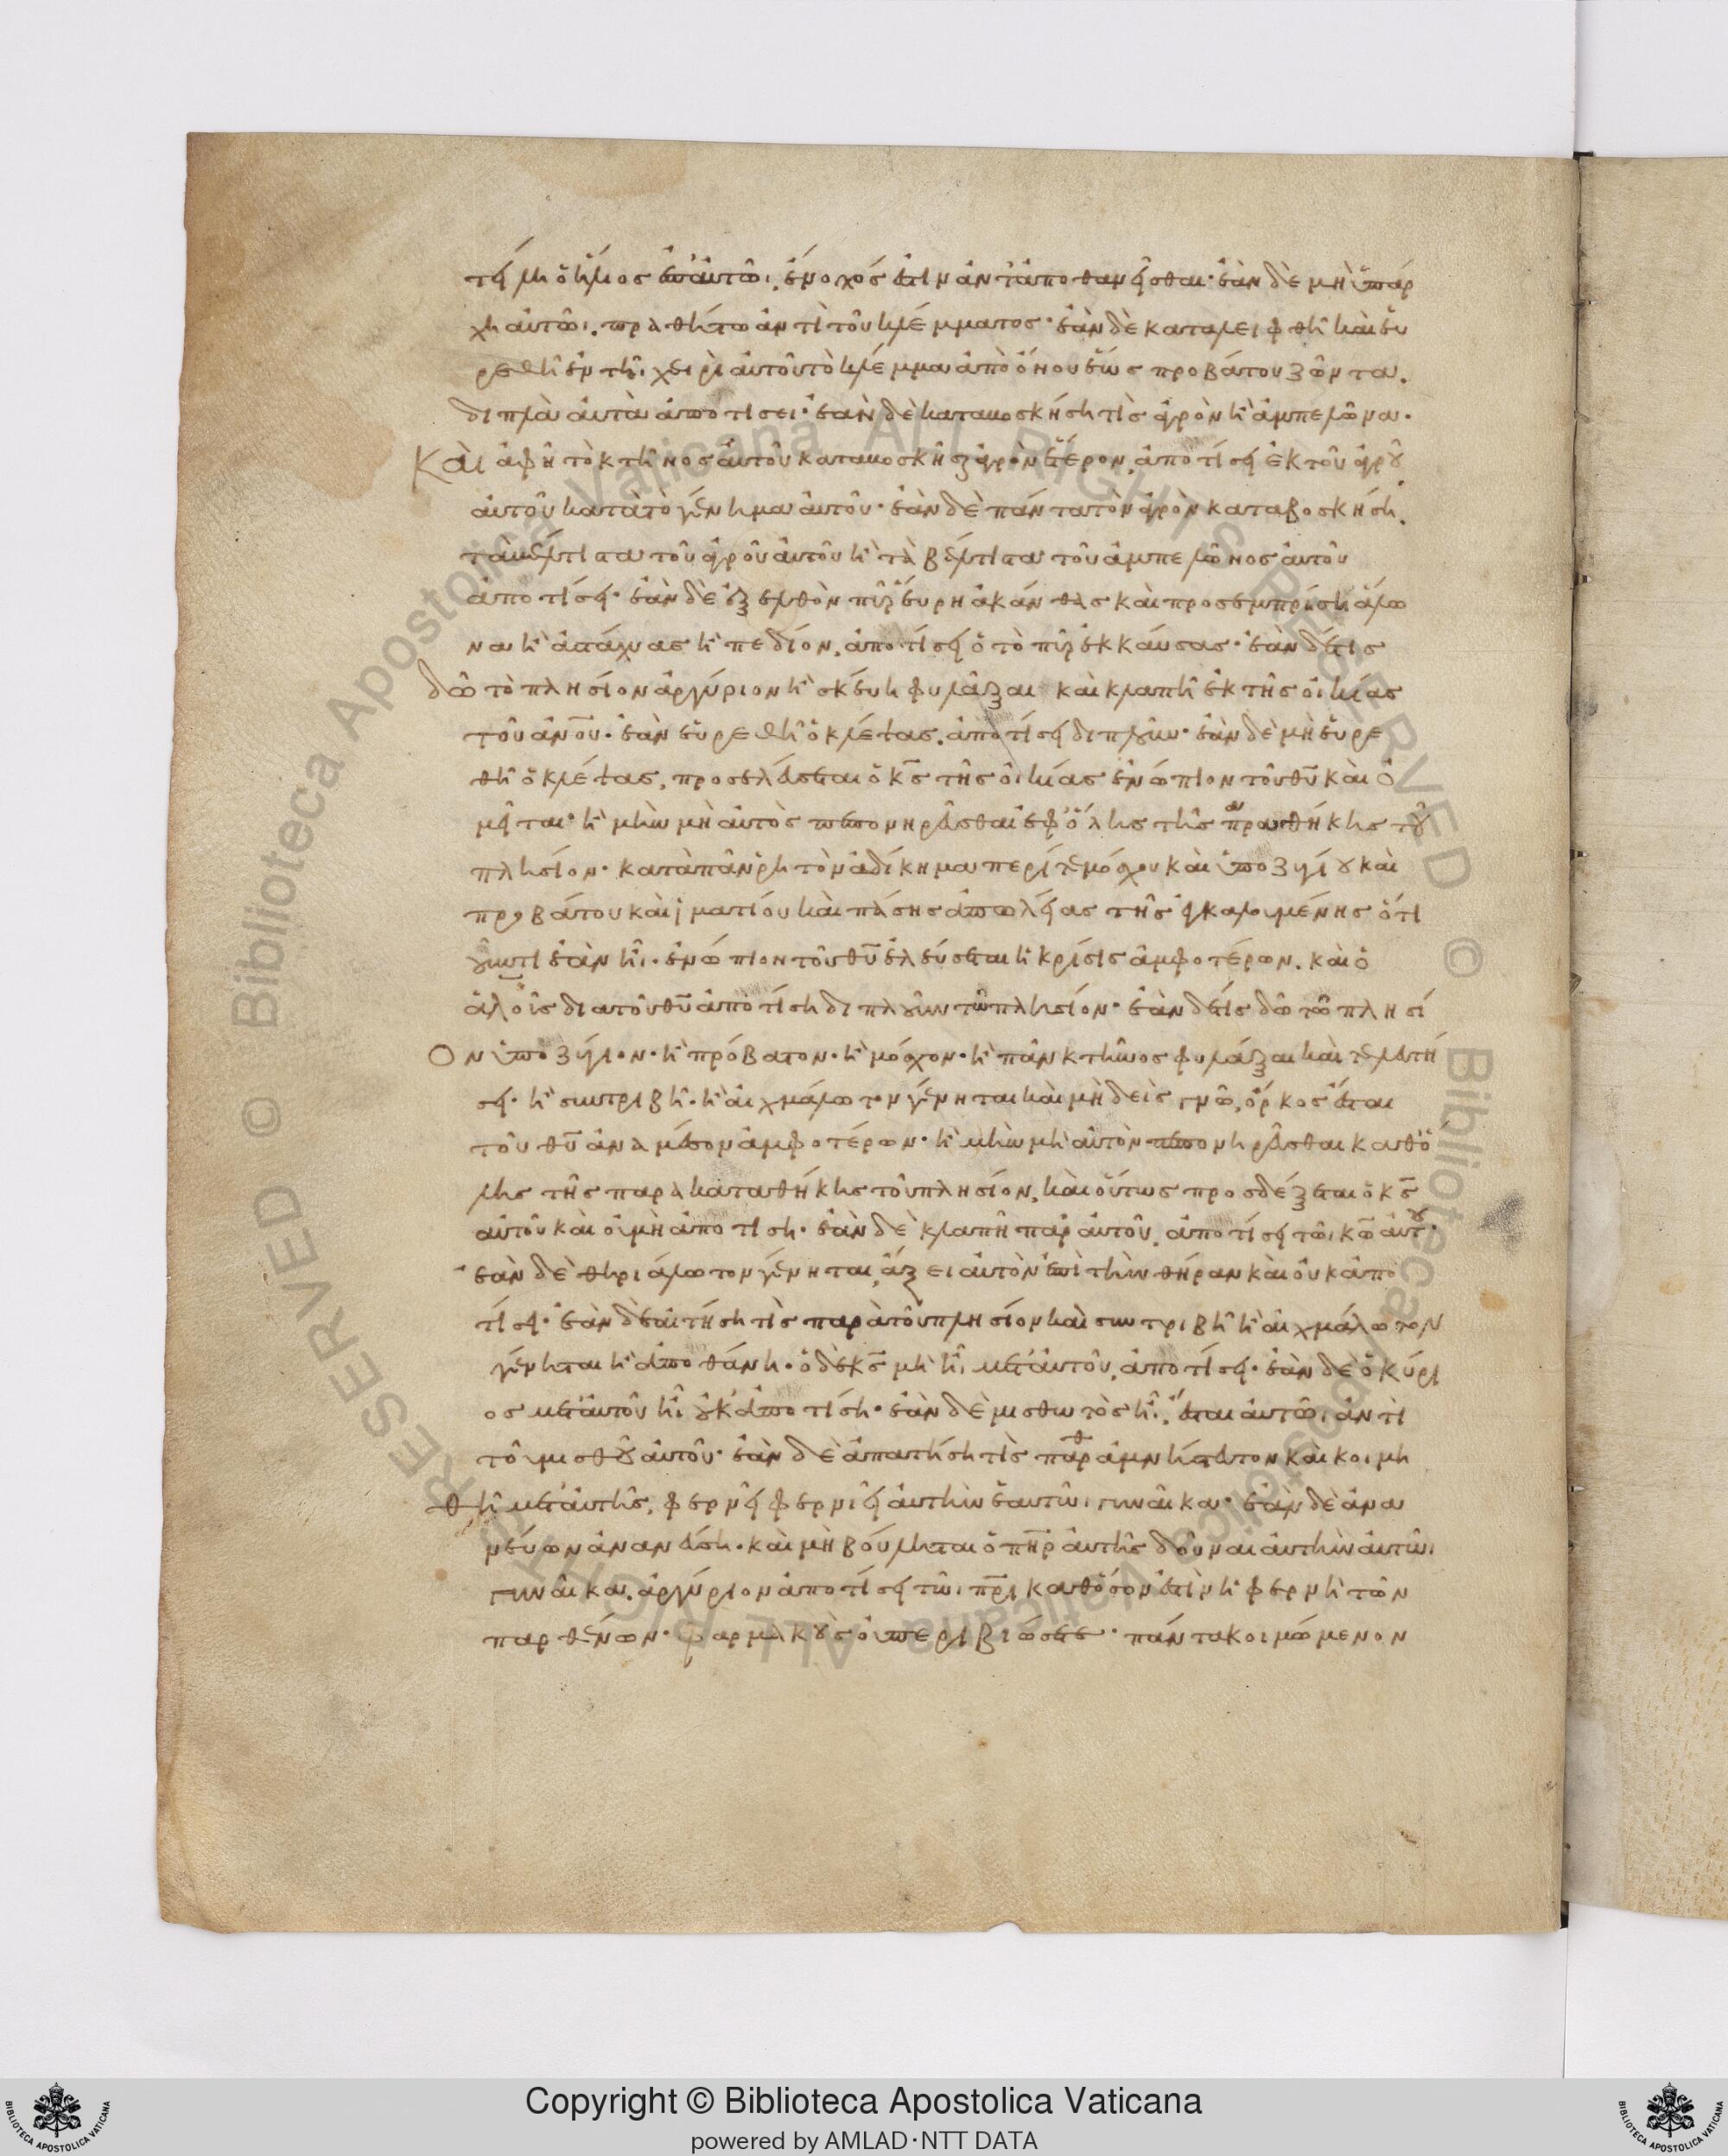 τείλη ὁ ἥλιος ἐπ' αὐτῶι, ἔνοχός ἐστιν ἀνταποθανεῖσθαι· ἐὰν δὲ μὴ ὑπάρ
χη αὐτῶι, πραθήτω ἀντὶ τοῦ κλέμματος· ἐὰν δὲ καταλειφθῆ καὶ εὑ
ρεθῆ ἐν τῆι χειρὶ αὐτοῦ τὸ κλέμμα ἀπὸ ὄνου ἕως προβάτου ζῶντα,
διπλὰ αὐτὰ ἀποτίσει· ἐὰν δὲ καταβοσκήση τὶς ἀγρὸν ἢ ἀμπελῶνα·
Καὶ ἀφῆ τὸ κτῆνος αὐτοῦ καταβοσκῆσαι ἀγρὸν ἕτερον, ἀποτίσει ἐκ τοῦ ἀγροῦ
αὐτοῦ κατὰ τὸ γένημα αὐτοῦ· ἐὰν δὲ πάντα τὸν ἀγρὸν καταβοσκήση,
τὰ βέλτιστα τοῦ ἀγροῦ αὐτοῦ ἢ τὰ βέλτιστα τοῦ ἀμπελῶνος αὐτοῦ
ἀποτίσει· ἐὰν δὲ ἐξελθὸν πῦρ εὕρη ἀκάνθας καὶ προσεμπρίση ἅλω
να ἢ ἀστάχυας ἢ πεδίον, ἀποτίσει ὁ τὸ πῦρ ἐκκαύσας· ἐὰν δέ τις
δῶ τὸ πλησίον ἀργύριον ἢ σκεύη φυλάξαι καὶ κλαπῆ ἐκ τῆς οἰκίας
τοῦ ἀνου· ἐὰν εὑρεθῆ ὁ κλέψας, ἀποτίσει διπλοῦν· ἐὰν δὲ μὴ εὑρε
θῆ ὁ κλέψας, προσελεύσεται ὁ κς τῆς οἰκίας ἐνώπιον τοῦ θυ καὶ ὀ
μεῖται· ἢ μὴν μὴ αὐτὸς πεπονηρεῦσθαι ἐφ' ὅλης τῆς παραθήκης τοῦ
πλησίον· κατὰ πᾶν ῥητὸν ἀδίκημα περί τε μόσχου καὶ ὑποζυγίου καὶ
προβάτου καὶ ἱματίου καὶ πάσης ἀπωλείας τῆς ἐγκαλουμένης ὅτι
οὖν τι ἐὰν ἦι· ἐνώπιον τοῦ θυ ἐλεύσεται ἡ κρίσις ἀμφοτέρων, καὶ ὁ
ἁλοῖς διὰ τοῦ θυ ἀποτίση διπλοῦν τῶ πλησίον· ἐὰν δέ τίς δῶ τῶ πλησί
Ον ὑποζύγιον· ἢ πρόβατον· ἢ μόσχον· ἢ πᾶν κτῆνος φυλάξαι καὶ τελευτή
σει· ἢ συντριβῆ· ἢ αἰχμάλωτον γένηται καὶ μὴ δεὶς γνῶ, ὅρκος ἔσται
τοῦ θυ ἀνὰ μέσον ἀμφοτέρων· ἢ μὴν μὴ αὐτὸν πεπονηρεῦσθαι καθ' ὅ
λης τῆς παρακαταθήκης τοῦ πλησίον, καὶ οὕτως προσδέξεται ὁ κς
αὐτοῦ καὶ οὐ μὴ ἀποτίση· ἐὰν δὲ κλαπῆ παρ' αὐτοῦ, ἀποτίσει τῶι κω αὐτοῦ·
ἐὰν δὲ θηριάλωτον γένηται, ἄξει αὐτὸν ἐπὶ τὴν θήραν καὶ οὐκ ἀπο
τίσει· ἐὰν δὲ αἰτήση τὶς παρὰ τοῦ πλησίον καὶ συντριβῆ ἢ αἰχμάλωτον
γένηται ἢ ἀποθάνη· ὁ δὲ κς μὴ ἦι μετ' αὐτοῦ, ἀποτίσει· ἐὰν δὲ ὁ κύρι
ος μετ' αὐτοῦ ἦι οὐκ ἀποτίση· ἐὰν δὲ μισθωτὸς ἦι, ἔσται αὐτῶι ἀντὶ
τοῦ μισθοῦ αὐτοῦ· ἐὰν δὲ ἀπατήση τὶς παρθ ἀμνήστευτον καὶ κοιμη
θῆ μετ' αὐτῆς, φερνεῖ φερνιεῖ αὐτὴν ἑαυτῶι γυναῖκα· ἐὰν δὲ ἀνα
νεύων ἀνανεύση· καὶ μὴ βούληται ὁ πηρ αὐτῆς δοῦναι αὐτὴν αὐτῶι
γυναῖκα, ἀργύριον ἀποτίσει τῶι πρι καθόσον ἐστὶν ἡ φερνὴ τῶν
παρθένων· φαρμακοὺς οὐ περιβιώσετε· πάντα κοιμώμενον
Copyright © Biblioteca Apostolica Vaticana
powered by AMLAD・NTT DATA